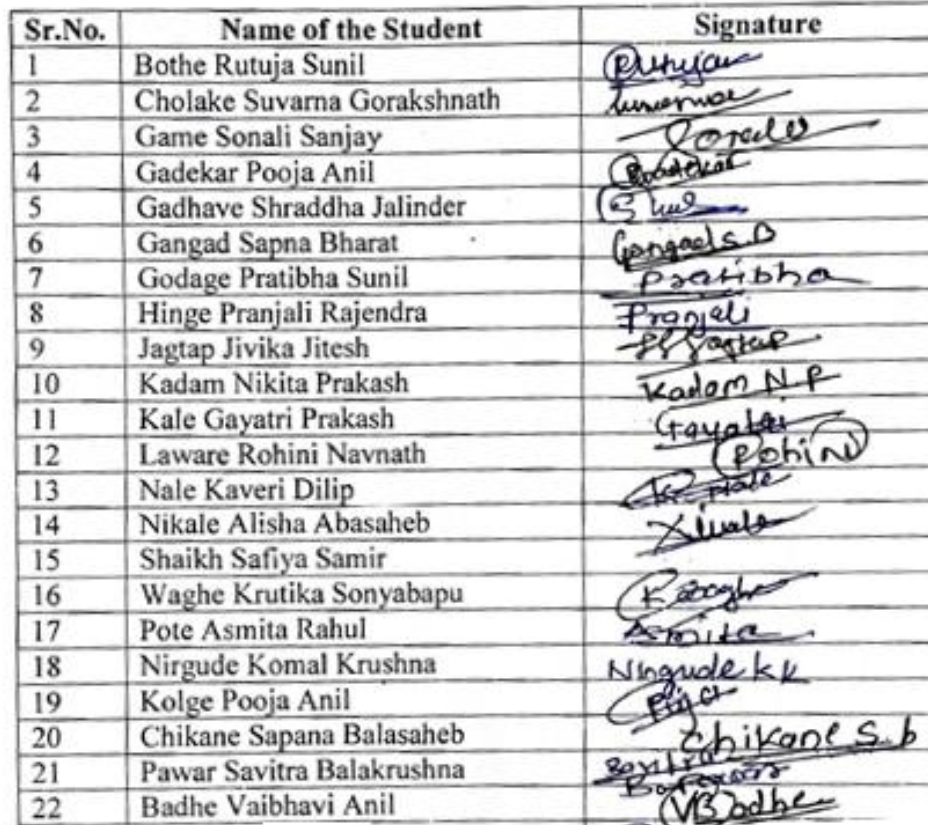 Sr.No. Name of the Student Signature
1 Bothe Rutuja Sunil Rutuja
2 Cholake Suvarna Gorakshnath
3 Game Sonali Sanjay
4 Gadekar Pooja Anil
5 Gadhave Shraddha Jalinder
6 Gangad Sapna Bharat Gangad S.B
7 Godage Pratibha Sunil Pratibha
8 Hinge Pranjali Rajendra Pranjali
9 Jagtap Jivika Jitesh Jagtap
10 Kadam Nikita Prakash Kadam N.P
11 Kale Gayatri Prakash Gayatri
12 Laware Rohini Navnath Rohini
13 Nale Kaveri Dilip
14 Nikale Alisha Abasaheb
15 Shaikh Safiya Samir
16 Waghe Krutika Sonyabapu
17 Pote Asmita Rahul Asmita
18 Nirgude Komal Krushna Nirgude KK
19 Kolge Pooja Anil
20 Chikane Sapana Balasaheb Chikane S.b
21 Pawar Savitra Balakrushna
22 Badhe Vaibhavi Anil VBadhe